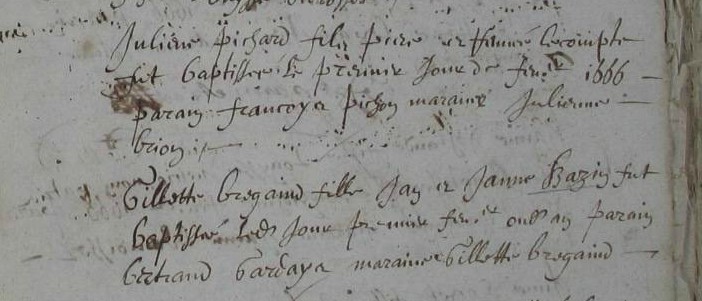 Juliene pichard fille piere et Janne lecompte
fut baptisée le premie Jour de feurie 1666
parain francoys pichon maraine Julienne
brion
Gillette bregaind fille Jan et Janne Bazin fut
baptisée led Jour premie feurie oud an parain
bertrand Gardaye maraine Gillette bregaind